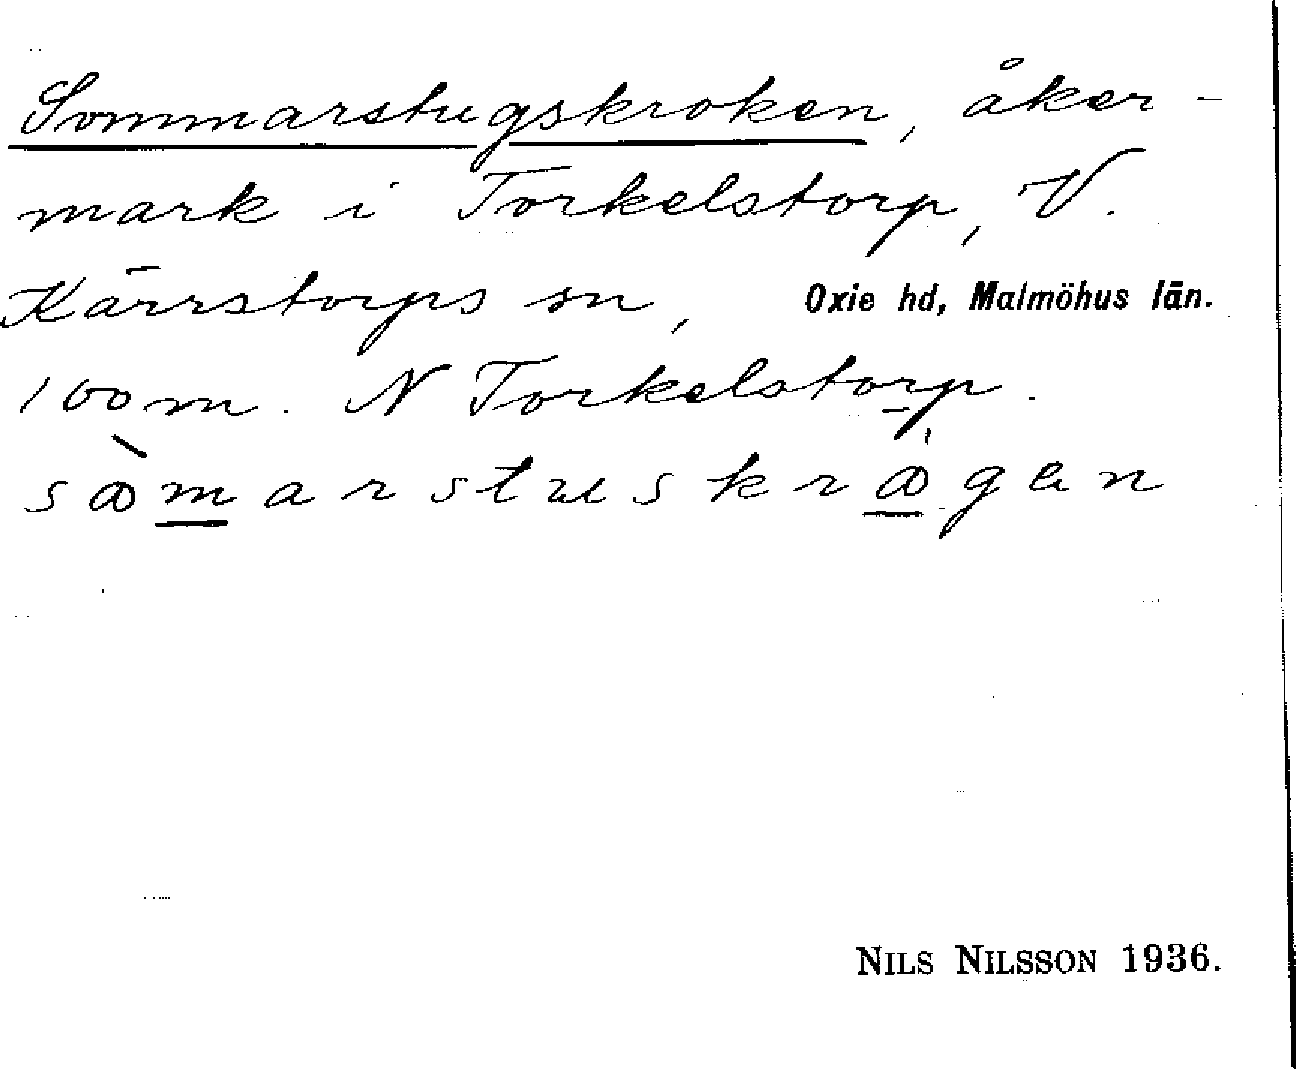 Sommarstugskroken, åker-
mark i Torkelstorp, V.
Kärrstorps sn, Oxie hd, Malmöhus län.
100 m. N Torkelstorp.
sꝏ̀marstuskrꝏ́gen
NILS NILSSON 1936.